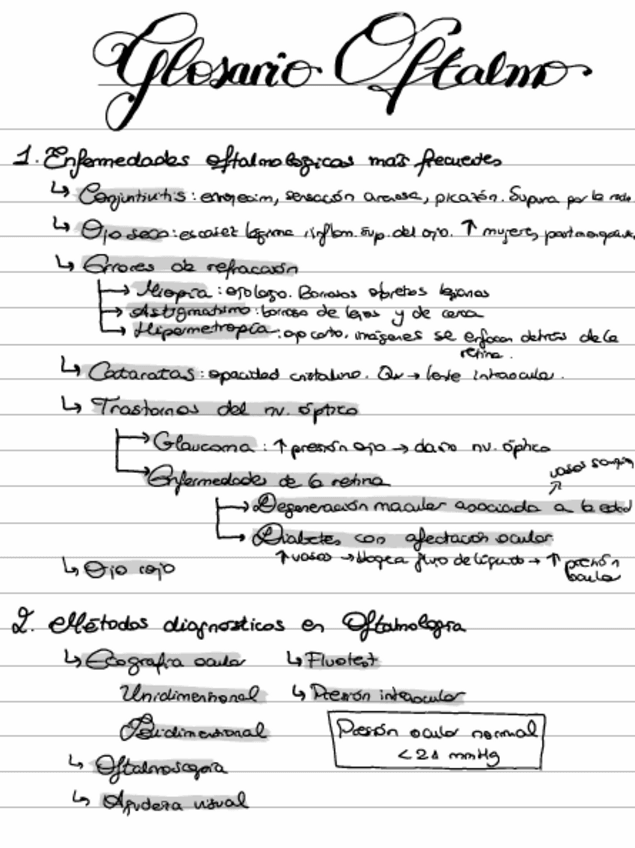 Glosario Oftalmo
1. Enfermedades oftalmológicas más frecuentes
↳ Conjuntivitis: enrojecim, sensación arenosa, picazón. Supura por la noche
↳ Ojo seco: escasez lágrima inflam. sup. del ojo. ↑ mujeres, postmenopausia
↳ Errores de refracción
→ Miopía: ojo largo. Borrosos objetos lejanos
→ Astigmatismo: borroso de lejos y de cerca
→ Hipermetropía: ojo corto, imágenes se enfocan detrás de la
retina.
↳ Cataratas: opacidad cristalino. Qx → lente intraocular.
↳ Trastornos del nv. óptico
→ Glaucoma: ↑ presión ojo → daño nv. óptico
→ Enfermedades de la retina
vasos
→ Degeneración macular asociada a la edad
→ Diabetes con afectación ocular
↑ vasos → bloquea flujo de líquido → ↑ presión
ocular
↳ Ojo rojo
2. Métodos diagnósticos en Oftalmología
↳ Ecografía ocular
Unidimensional
Bidimensional
↳ Oftalmoscopia
↳ Agudeza visual
↳ Fluotest
↳ Presión intraocular
Presión ocular normal
<21 mmHg